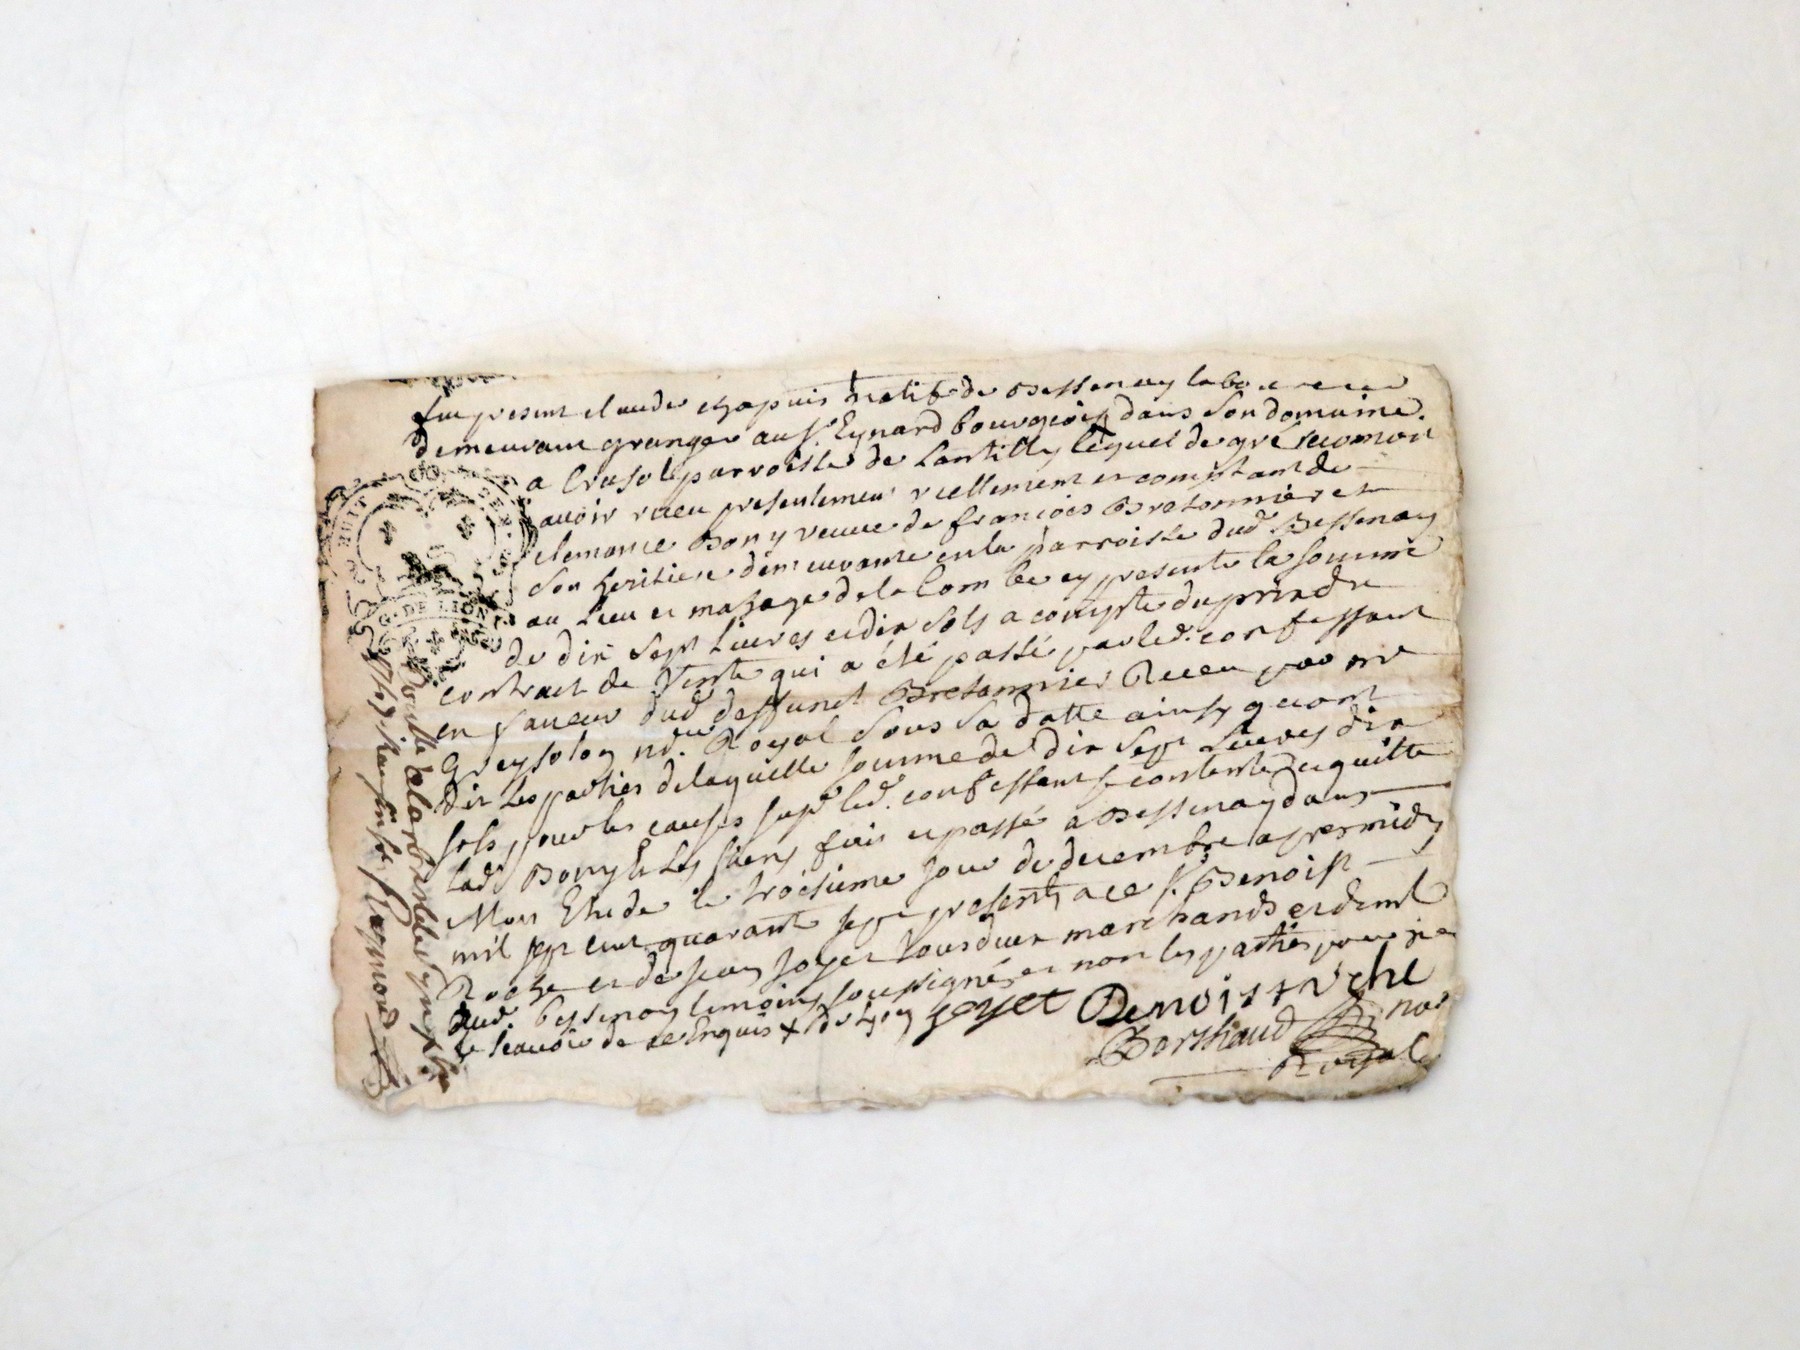 fut present claude chapuis natif de Bessenay laboureur
demeurant granger au Sr. Eynard bourgeois dans son domaine
a Crusol parroisse de Lantilly lequel de gré reconnoit
avoir receu presentement reellement et comptant de
clemance Bony veuve de francois Bretonnier et
son heritiere demeurante en la parroisse dud. Bessenay
au Lieu et masage de la Combe cy presente la somme
de dix sept Livres et dix sols a compte du prix du
contract de Vente qui a été passé par led. confessant
en faveur dud. deffunct Bretonnier Receu par me
Greysolon nore. Royal sous sa datte ainsy que ont
dit les parties de laquelle somme de dix sept Livres dix
sols pour les causes susd. led. confessant se contente et quitte
lad. Bony et les siens fait et passé a Bessenay dans
Mon Etude le troisieme jour de decembre apres midy
mil sept cent quarant sept presents a ce Sr. Benoist
Roche et de Jean Joyet tous deux marchands et dud.
Bessenay temoins soussignés et non les parties pour ne
le scavoir de ce Enquis + de Lyon
Joyet Benoist Roche
Barthaud nore
Royal
HUIT DEN.
G. DE LION